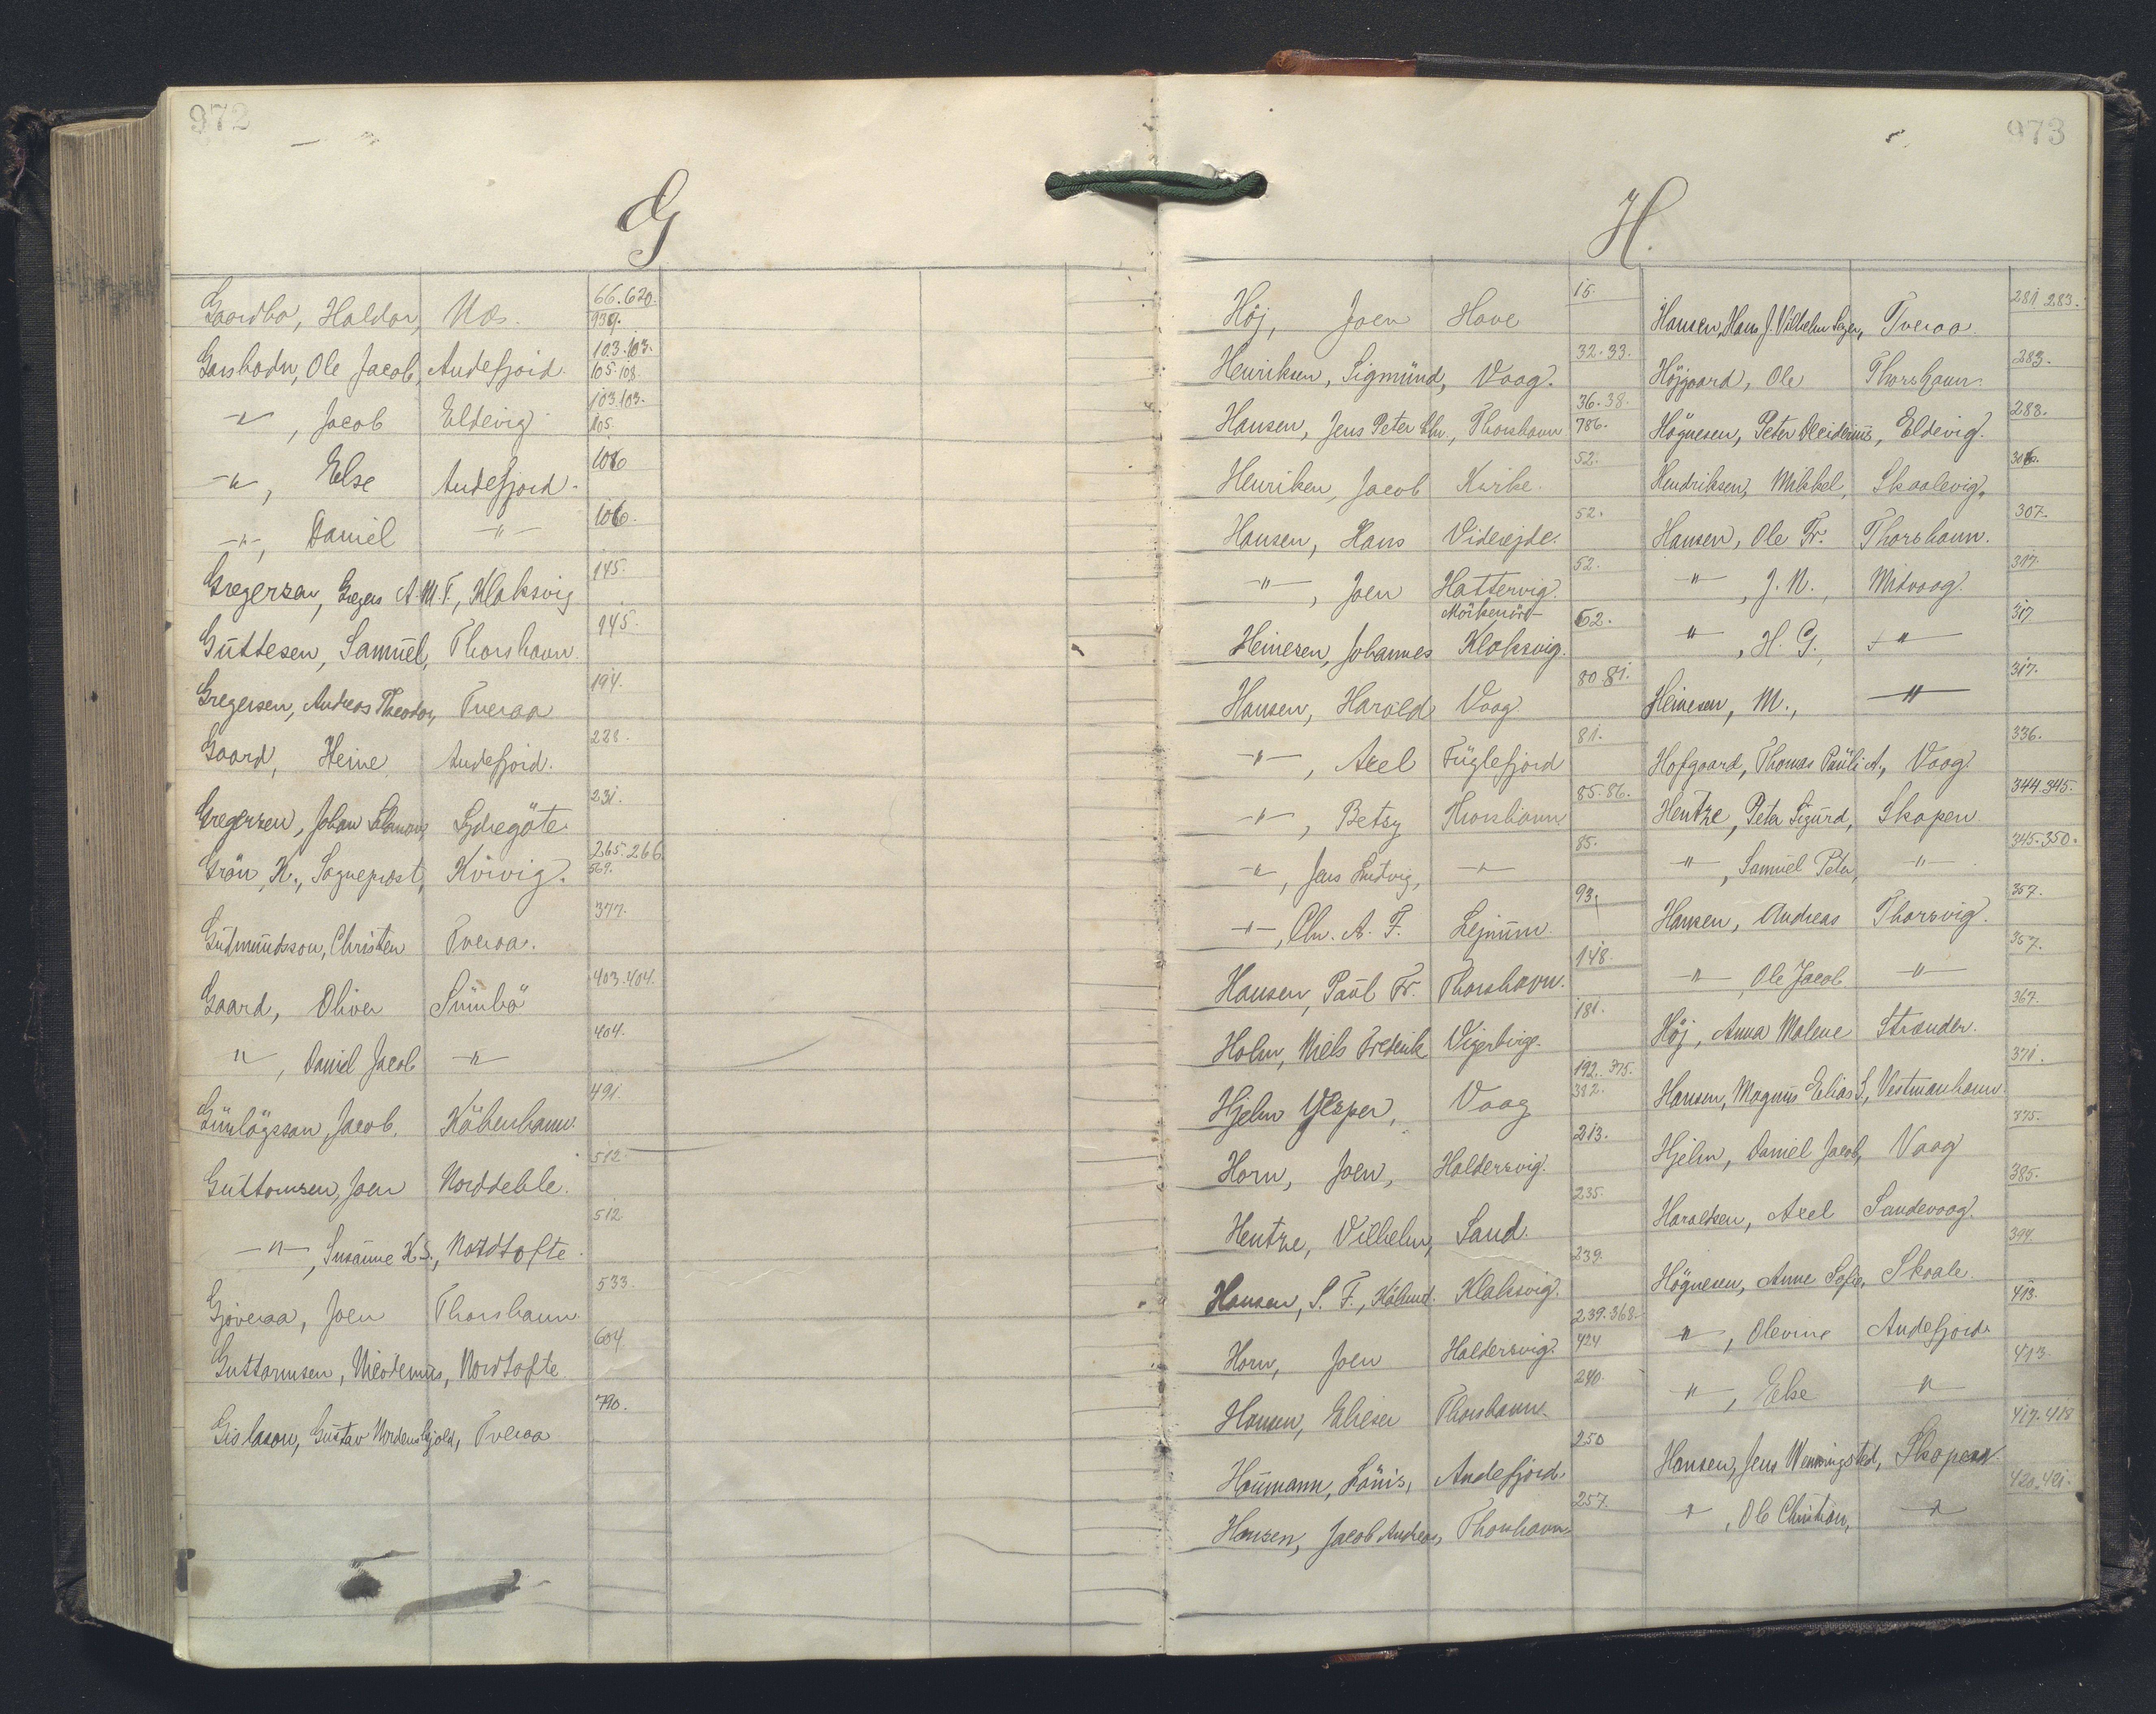 972
G
Gaardbo, Haldor, Næs. 66. 620. 939.
Garsbodn, Ole Jacob, Andefjord. 103. 103. 105. 108.
-"-, Jacob Eldevig 103. 103. 105.
-"-, Else Andefjord. 106
-"-, Daniel -"- 106.
Gregersen, Gregers A. M. F., Klaksvig 145.
Guttesen, Samuel, Thorshavn. 945.
Gregersen, Andreas Theodor, Tveraa 194.
Gaard, Heine Andefjord. 228.
Gregersen, Johan Sydregöte 231.
Grön, K., Sogneprost, Kvivig. 265. 266. 569.
Gudmundsson, Christen Tveraa. 377.
Gaard, Oliver Sumbö 403. 404.
"-, Daniel Jacob -"- 404.
Gunlögsson, Jacob, Köbenhavn. 491.
Guttormsen, Joen Norddeble. 512.
-"-, Susanne K. S., Nordtofte. 512
Gjöveraa, Joen Thorshavn. 533.
Guttormsen, Nicodemus, Nordtofte. 604
Gislason, Gustav Nordenskjold, Tveraa 790.
973
H.
Höj, Joen Hove 15.
Henriksen, Sigmund, Vaag. 32. 33.
Hansen, Jens Peter Chr., Thorshavn 36. 38. 786.
Henriksen, Jacob Kirke. 52.
Hansen, Hans Viderejde. 52.
-"-, Joen Hattervig. 52.
Mörkenöre
Heinesen, Johannes Klaksvig. 62.
Hansen, Harald Vaag. 80. 81.
-"-, Axel Fuglefjord 81.
-"-, Betzy Thorshavn 85. 86.
-"-, Jens Ludvig, -"- 85.
-"-, Chr. A. F. Lejnum. 93.
Hansen, Paul Fr. Thorshavn. 148.
Holm, Niels Frederik Vigerbirge. 181.
Hjelm Jesper, Vaag 192. 375. 382.
Horn, Joen, Haldersvig. 213.
Hentze, Vilhelm, Sand. 235.
Hansen, S. F., Købmd. Klaksvig. 239.
Horn, Joen Haldersvig. 239. 368. 424
Hansen, Elieser Thorshavn. 240.
Haumann, Lönis, Andefjord. 250
Hansen, Jacob Andreas, Thorshavn. 257.
Hansen, Hans J. Vilhelm Tveraa. 281. 283.
Höjgaard, Ole Thorshavn. 283.
Högnesen, Peter Desiderius, Eldevig. 288.
Hendriksen, Mikkel, Skaalevig. 306.
Hansen, Ole Fr. Thorshavn. 307.
-"-, J. N., Midvaag. 317.
-"-, H. G., -"- 317
Heinesen, M., -"- 317.
Hofgaard, Thomas Pauli A., Vaag. 336.
Hentze, Peter Sigurd, Skopen 344. 345.
-"-, Samuel Peter, -"- 345. 350.
Hansen, Andreas Thorsvig. 357.
-"- Ole Jacob -"- 357.
Höj, Anna Malene Strænder. 367.
Hansen, Magnus Elias S., Vestmanhavn. 371.
Hjelm, Daniel Jacob, Vaag 375.
Haraldsen, Axel Sandevaag. 385.
Högnesen, Anne Sofie, Skaale. 399.
-"-, Olevine Andefjord. 413.
-"-, Else -"- 413.
Hansen, Jens Wenningsted, Skopen. 417. 418
-"-, Ole Christian, -"- 420. 421.